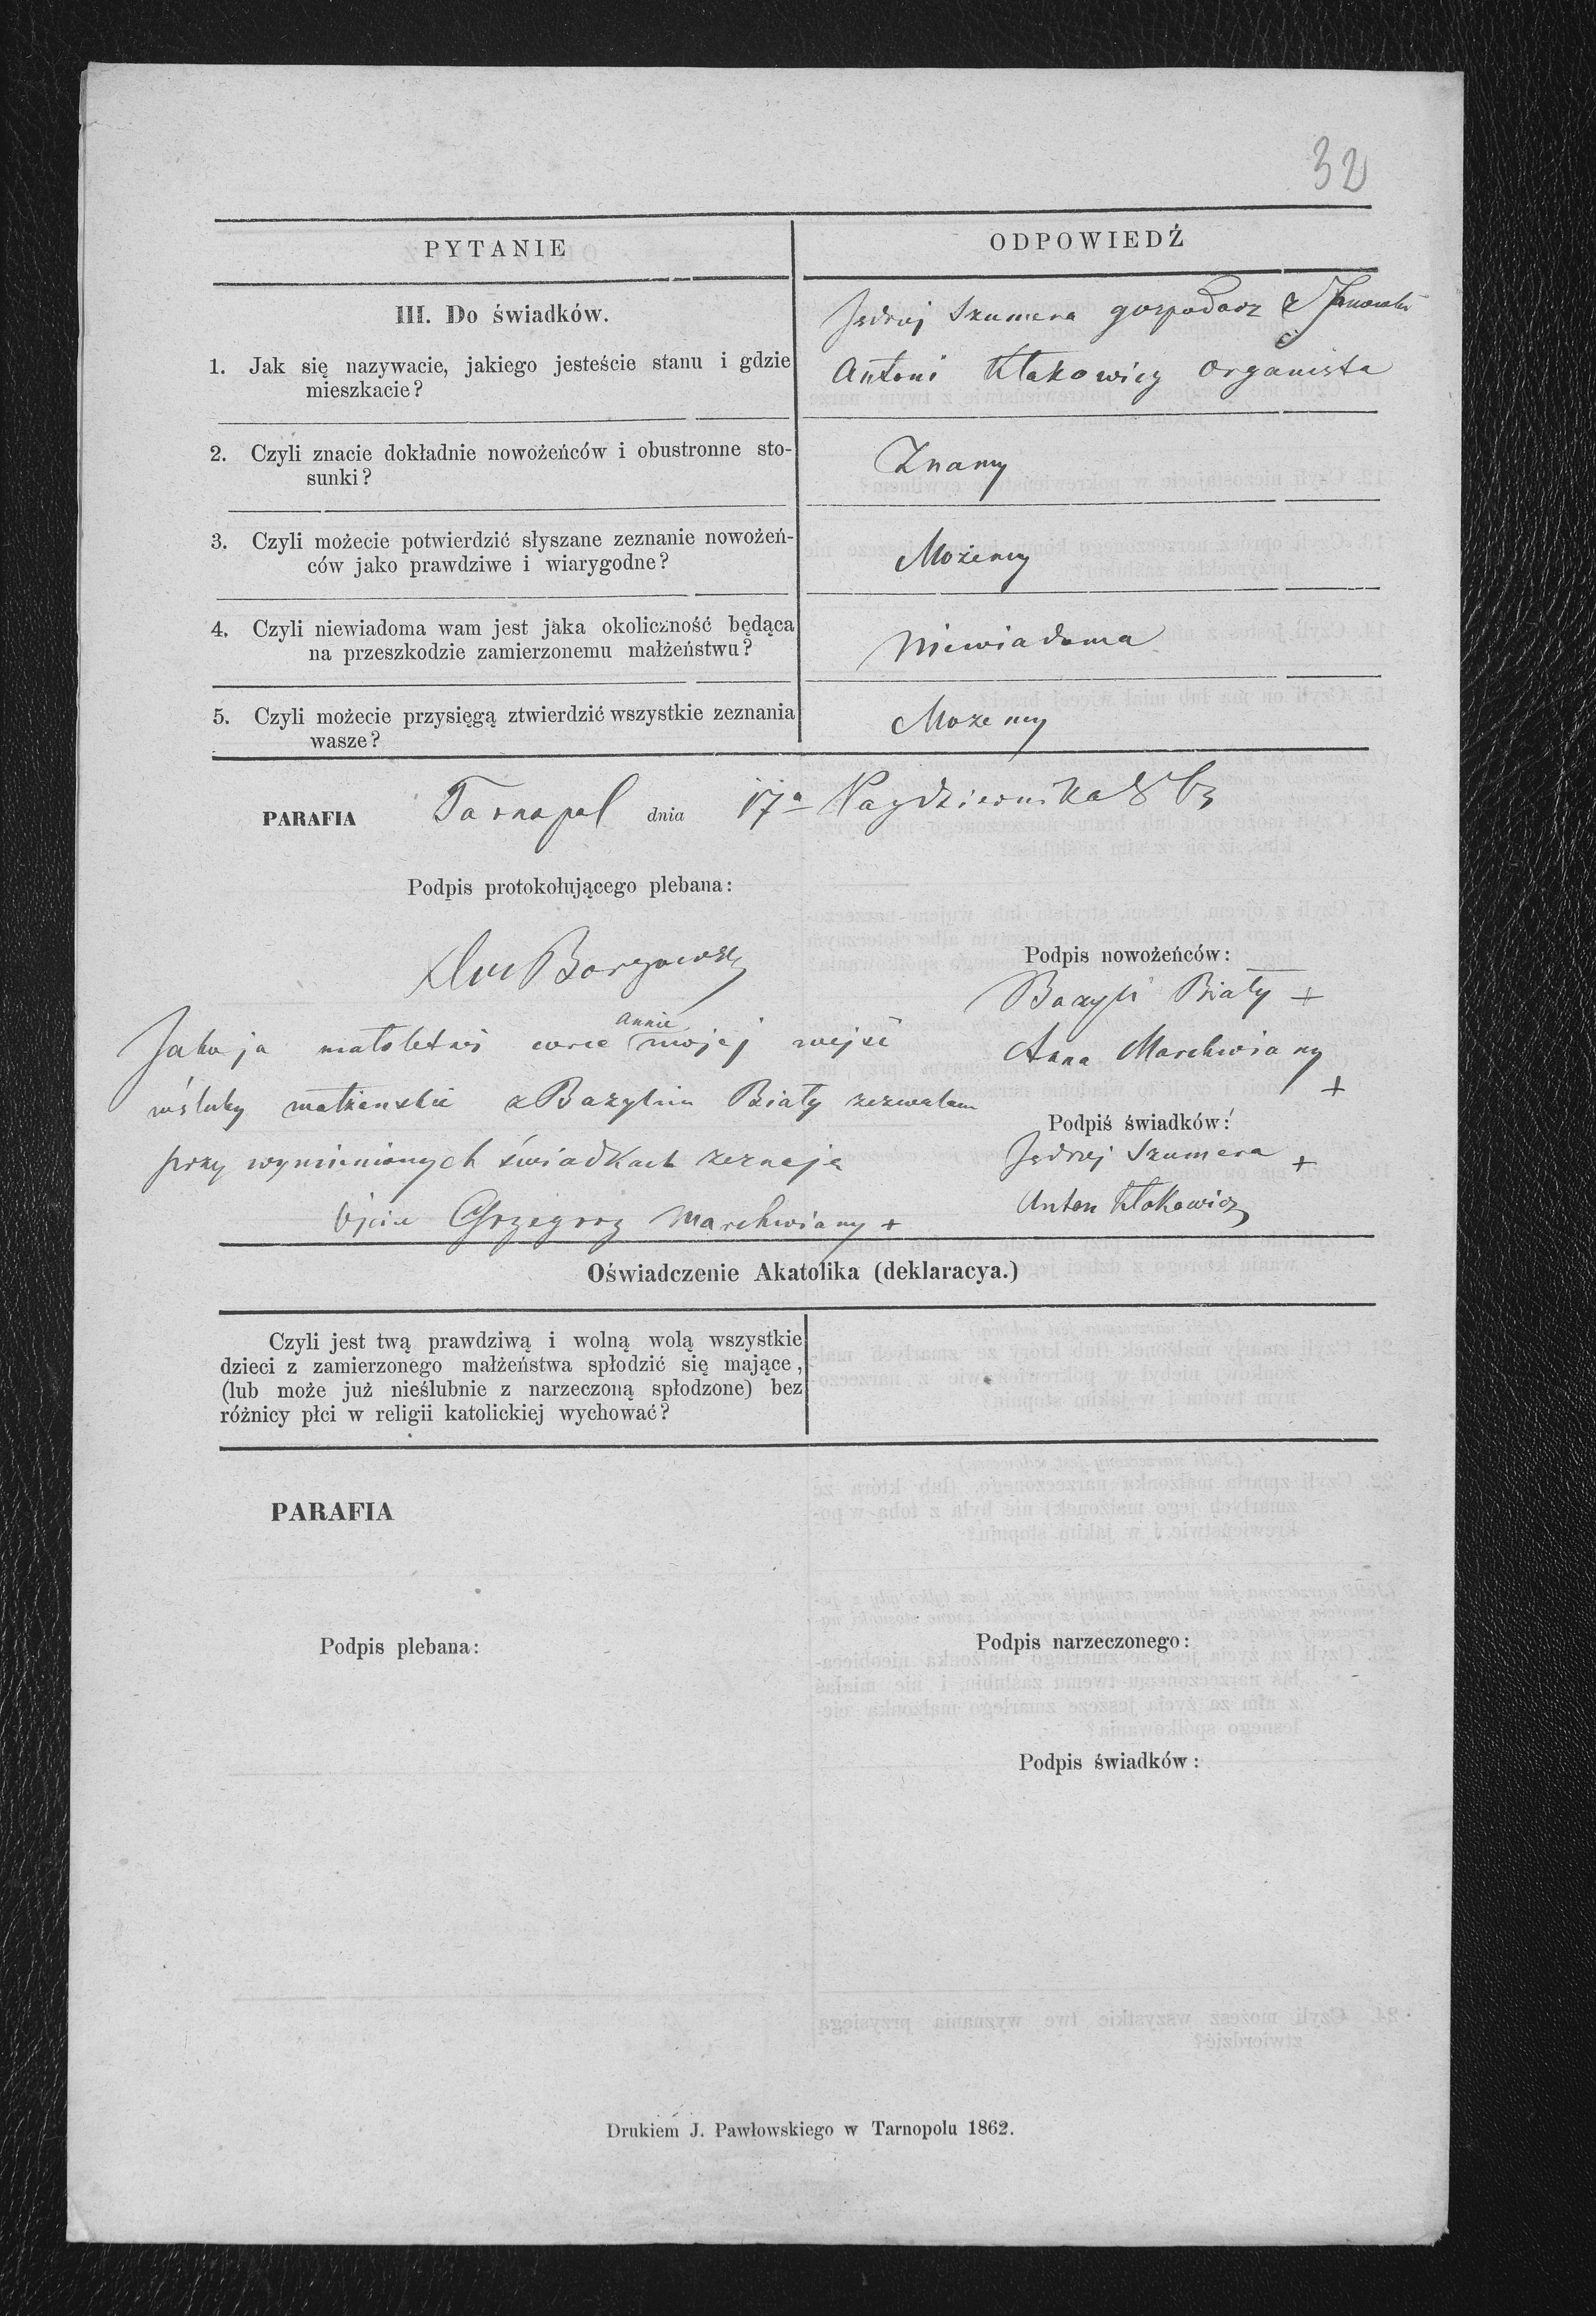 32
PYTANIE
ODPOWIEDŹ
III. Do świadków.
1. Jak się nazywacie, jakiego jesteście stanu i gdzie
mieszkacie?
Jędrzej Szumera gospodarz z
Antoni Kłakowicz Organista
2. Czyli znacie dokładnie nowożeńców i obustronne sto-
sunki?
Znamy
3. Czyli możecie potwierdzić słyszane zeznanie nowożeń-
ców jako prawdziwe i wiarygodne?
Możemy
4. Czyli niewiadoma wam jest jaka okoliczność będąca
na przeszkodzie zamierzonemu małżeństwu?
Niewiadoma
5. Czyli możecie przysięgą ztwierdzić wszystkie zeznania
wasze?
Możemy
PARAFIA Tarnopol dnia 17a Pazdziernika 863
Podpis protokołującego plebana:
Podpis nowożeńców:
Bazyli Biały +
Anna Marchwiany
+
Podpis świadków:
Jędrzej Szumera +
Anton Kłakowicz
Annie
Jako ja małoletni corce mojej wejść
w śluby małżenskie z Bazylim Biały zezwalam
przy wymienionych świadkach zeznaje
Ojciec Grzegorz Marchwiany +
Oświadczenie Akatolika (deklaracya.)
Czyli jest twą prawdziwą i wolną wolą wszystkie
dzieci z zamierzonego małżeństwa spłodzić się mające,
(lub może już nieślubnie z narzeczoną spłodzone) bez
różnicy płci w religii katolickiej wychować?
PARAFIA
Podpis plebana:
Podpis narzeczonego:
Podpis świadków:
Drukiem J. Pawłowskiego w Tarnopolu 1862.